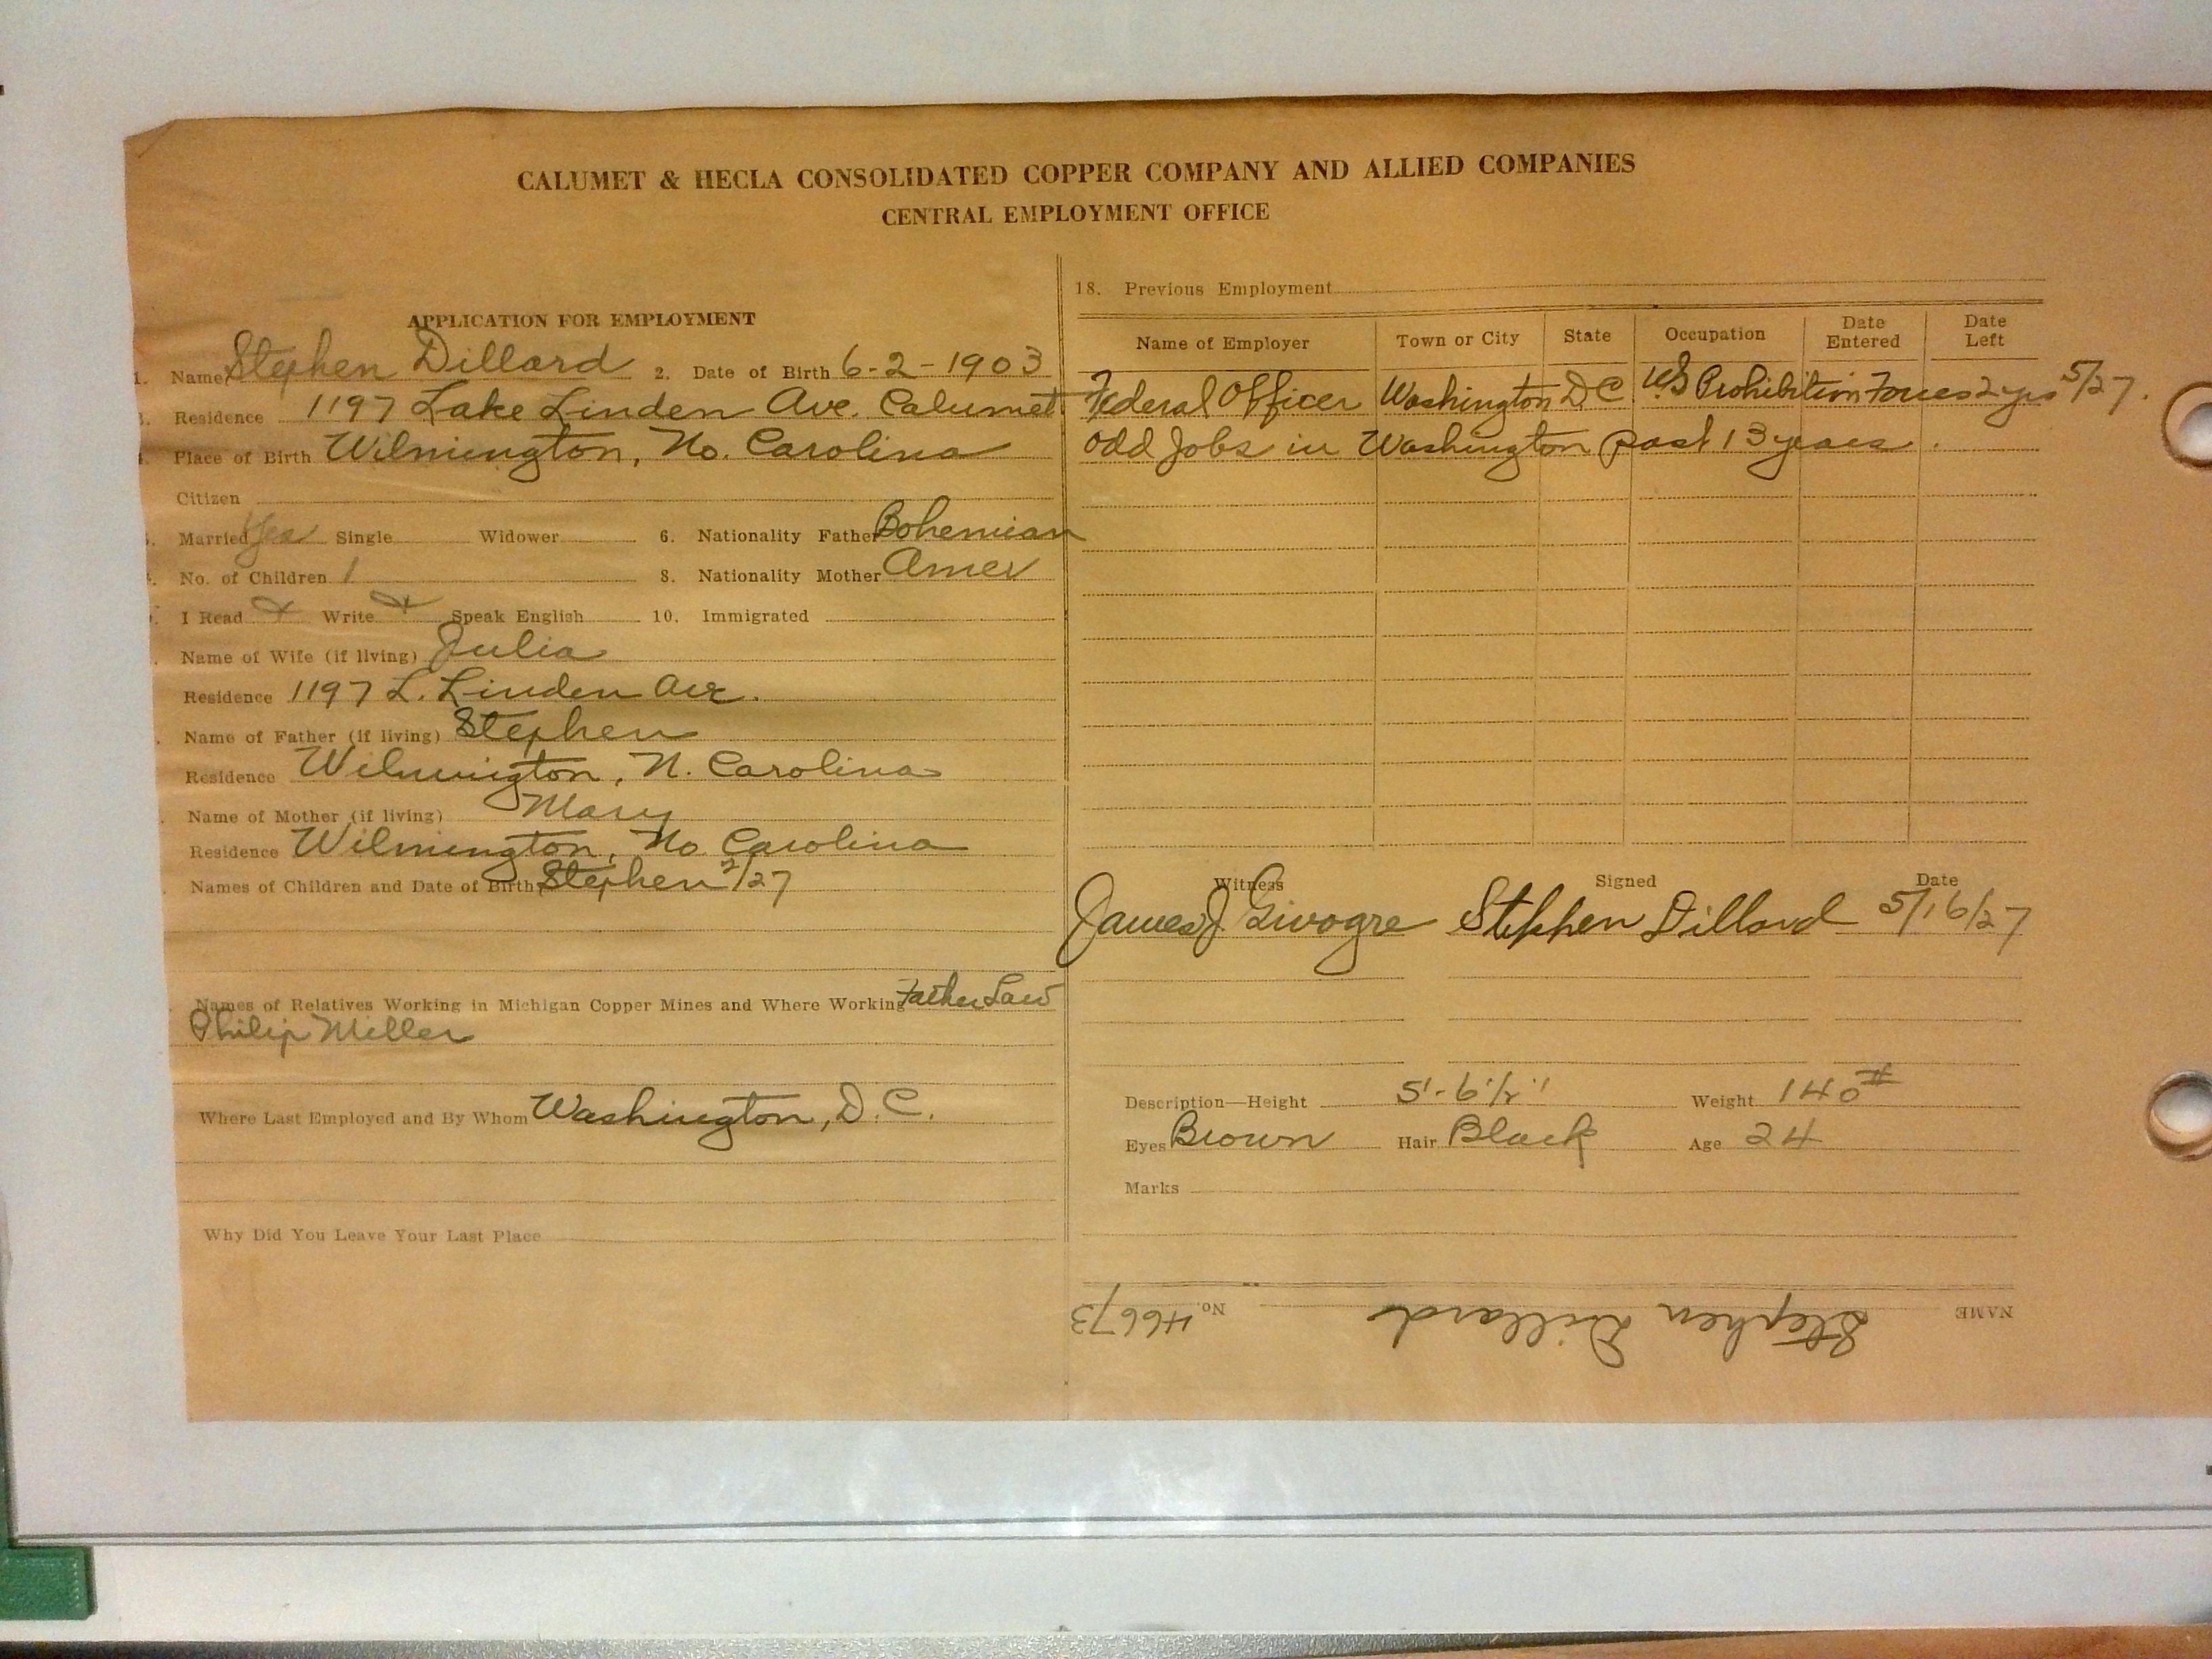 CALUMET & HECLA CONSOLIDATED COPPER COMPANY AND ALLIED COMPANIES
CENTRAL EMPLOYMENT OFFICE
APPLICATION FOR EMPLOYMENT
1. Name Stephen Dillard 2. Date of Birth 6-2-1903
3. Residence 1197 Lake Linden Ave. Calumet
4. Place of Birth Wilmington, No. Carolina
Citizen
5. Married Yes Single Widower 6. Nationality Father Bohemian
No. of Children 1 8. Nationality Mother Amer
I Read Write Speak English 10. Immigrated
Name of Wife (if living) Julia
Residence 1197 L. Linden Ave.
Name of Father (if living) Stephen
Residence Wilmington, N. Carolina
Name of Mother (if living) Mary
Residence Wilmington, No Carolina
Names of Children and Date of Birth Stephen 2/27
Names of Relatives Working in Michigan Copper Mines and Where Working Father Law
Philip Miller
Where Last Employed and By Whom Washington, D.C.
Why Did You Leave Your Last Place
18. Previous Employment
Name of Employer Town or City State Occupation Date Entered Date Left
Federal Officer Washington D C US Prohibition Forces 2 yrs 5/27.
Odd Jobs in Washington past 13 years.
Witness Signed Date
James J. Givogre Stephen Dillard 5/16/27
Description—Height 5'-6 1/2" Weight 140#
Eyes Brown Hair Black Age 24
Marks
NAME Stephen Dillard No. 46673